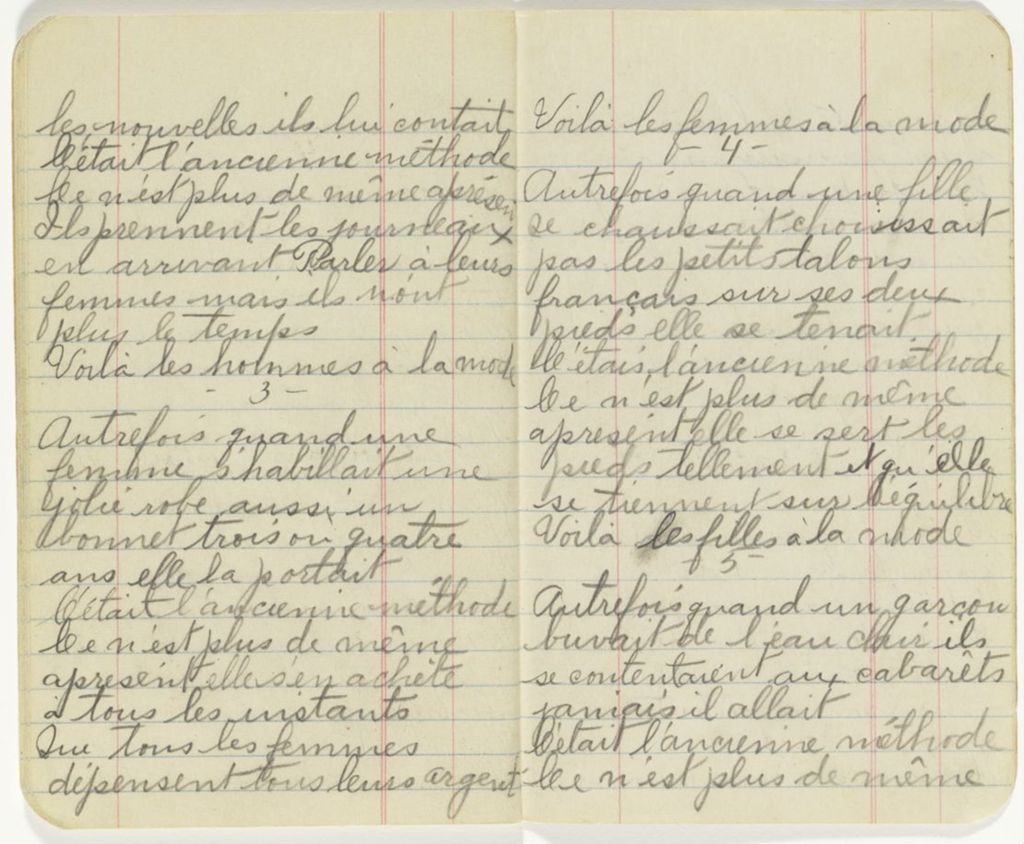 les nouvelles ils lui contait
C'était l'ancienne méthode
Ce n'est plus de même aprésen
Ils prennent les journeaux
en arrivant Parler à leurs
femmes mais ils nont
plus le temps
Voilà les hommes à la mode
- 3 -
Autrefois quand une
femme s'habillait une
jolie robe aussi un
bonnet trois ou quatre
ans elle la portait
C'était l'ancienne méthode
Ce n'est plus de même
apresént elle s'en achète
à tous les instants
Que tous les femmes
dépensent tous leurs argent
Voilà les femmes à la mode
- 4 -
Autrefois quand une fille
se chaussait choisissait
pas les petits talons
français sur ses deux
pieds elle se tenait
C'étais l'ancienne méthode
Ce n'est plus de même
apresént elle se sert les
pieds tellement et qu'elle
se tiennent sur l'équilibre
Voilà les filles à la mode
- 5 -
Autrefois quand un garçon
buvait de l'eau clair ils
se contentaient aux cabarêts
jamais il allait
C'était l'ancienne méthode
Ce n'est plus de même